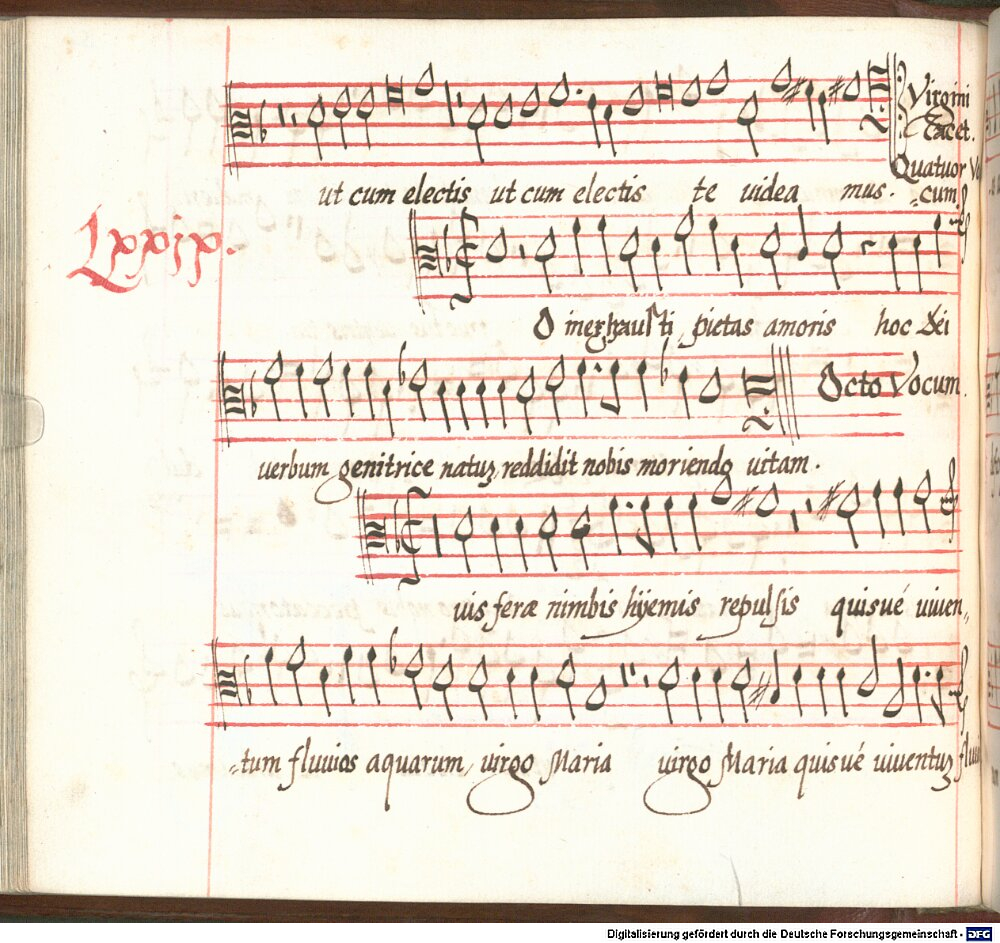 Virgini
tacet.
Quatuor Vo
ut cum electis ut cum electis te uidea mus. =cum
Lxxix.
O inexhausti pietas amoris hoc Dei
Octo Vocum.
uerbum genitrice natuz reddidit nobis moriendo uitam.
uis feræ nimbis hyemis repulsis quisué uiuen=
=tum fluuios aquarum, uirgo Maria uirgo Maria quisué uiuentuz flu
Digitalisierung gefördert durch die Deutsche Forschungsgemeinschaft - DFG